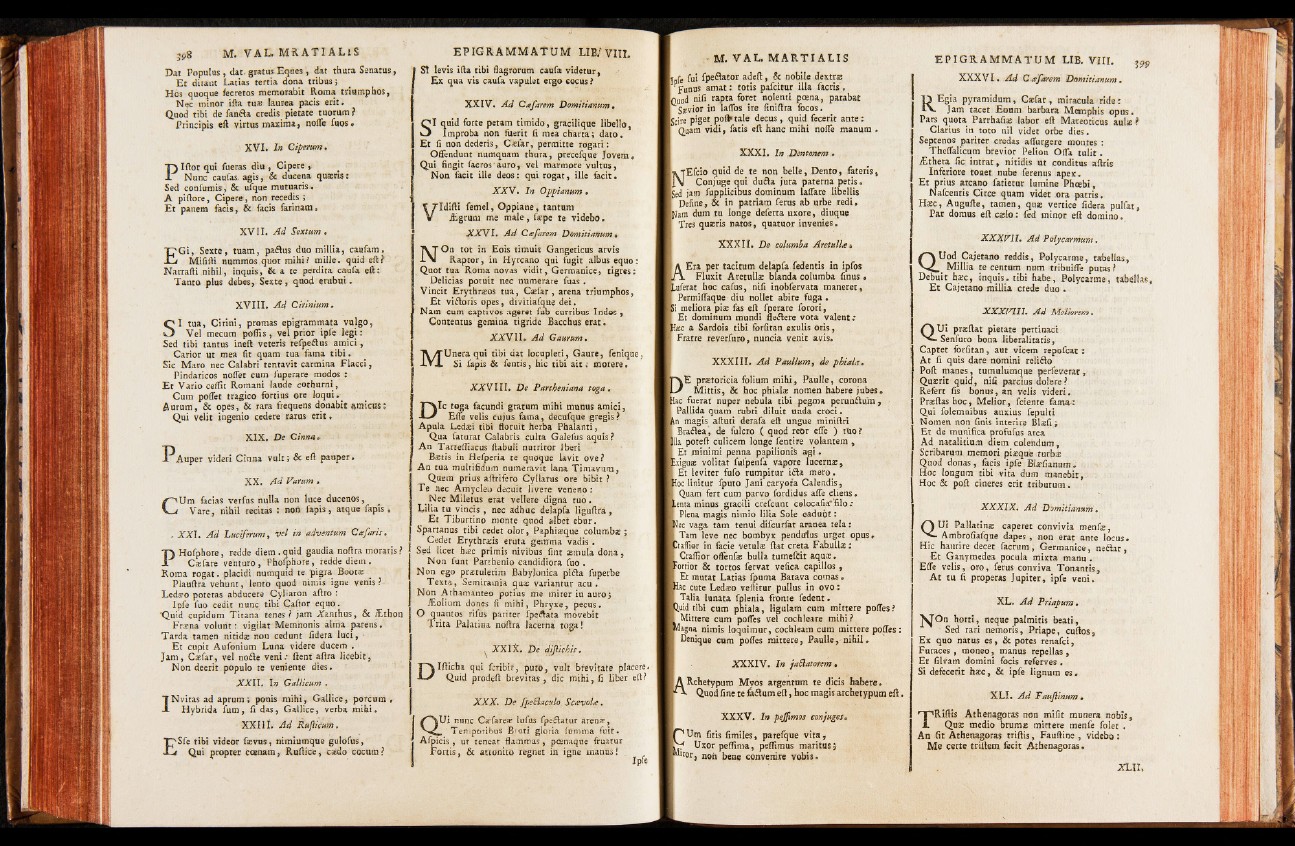 398 M. VAL. MRATIALIS
Dat Populus, dat gratus Eques, dat thura Senatus,
Et ditant Latias tertia dona tribus;
Hos quoque secretos memorabit Roma triumphos,
Nec minor ista tuæ laurea pacis erit.
Quod tibi de sancta credis pietate tuorum?
Principis est virtus maxima, nosse suos.
XVI. In Ciperum.
PIstor qui fueras diu, Cipere,
Nunc causas agis, & ducena quæris:
Sed consumis, & usque mutuaris.
A pistore, Cipere, non recedis;
Et panem facis, & facis farinam.
XVII. Ad Sextum.
EGi, Sexte, tuam, pactus duo millia, causam.
Misisti nummos quot mihi? mille. quid est?
Narrasti nihil, inquis, & a te perdita causa est:
Tanto plus debes, Sexte, quod erubui.
XVIII. Ad Citinium.
SI tua, Cirini, promas epigrammata vulgo,
Vel mecum possis, vel prior ipse legi:
Sed tibi tantus inest veteris respectus amici,
Carior ut mea sit quam tua fama tibi.
Sic Maro nec Calabri tentavit carmina Flacci,
Pindaricos nosset cum superare modos:
Et Vario cessit Romani laude cothurni,
Cum posset tragico fortius ore loqui.
Aurum, & opes, & rura frequens donabit amicus:
Qui velit ingenio cedere rarus erit.
XIX. De Cinna.
PAuper videri Cinna vult; & est pauper.
XX. Ad Varum.
CUm facias versus nulla non luce ducenos,
Vare, nihil recitas: non sapis, atque sapis.
XXI. Ad Luciferum, vel in adventum Cæsaris.
PHosphore, redde diem. quid gaudia nostra moraris?
Cæsare venturo, Phosphore, redde diem.
Roma rogat. placidi numquid te pigra Bootæ
Plaustra vehunt, lento quod nimis igne venis?
Ledæo poteras abducere Cyllaron astro:
Ipse suo cedit nunc tibi Castor equo.
Quid cupidum Titana tenes? jam Xanthus, & Æthon
Fræna volunt: vigilat Memnonis alma parens.
Tarda tamen nitidæ non cedunt sidera luci,
Et cupit Ausonium Luna videre ducem.
Jam, Cæsar, vel nocte veni: stent astra licebit,
Non deerit populo te veniente dies.
XXII. In Gallicum.
INvitas ad aprum; ponis mihi, Gallice, porcum.
Hybrida sum, si das, Gallice, verba mihi.
XXIII. Ad Rusticum.
ESse tibi videor sævus, nimiumque gulosus,
Qui propter cœnam, Rustice, cædo cocum?
EPIGRAMMATUM LIB. VIII.
SI levis ista tibi flagrorum causa videtur,
Ex qua vis causa vapulet ergo cocus?
XXIV. Ad Cæsarem Domitianum.
SI quid forte petam timido, gracilique libello,
Improba non fuerit si mea charta; dato.
Et si non dederis, Cæsar, permitte rogari:
Offendunt numquam thura, precesque Jovem.
Qui fingit sacros auro, vel marmore vultus,
Non facit ille deos: qui rogat, ille facit.
XXV. In Oppianum.
VIdisti semel, Oppiane, tantum
Ægrum me male, sæpe te videbo.
XXVI. Ad Cæsarem Domitianum.
NOn tot in Eois timuit Gangeticus arvis
Raptor, in Hyrcano qui fugit albus equo:
Quot tua Roma novas vidit, Germanice, tigres:
Delicias potuit nec numerare suas.
Vincit Erythræos tua, Cæsar, arena triumphos,
Et victoris opes, divitiasque dei.
Nam cum captivos ageret sub curribus Indos,
Contentus gemina tigride Bacchus erat.
XXVII. Ad Gaurum.
MUnera qui tibi dat locupleti, Gaure, senique,
Si sapis & sentis, hic tibi ait: morere.
XXVIII. De Partheniana toga.
DIc toga facundi gratum mihi munus amici,
Esse velis cujus fama, decusque gregis?
Apula Ledæi tibi floruit herba Phalanti,
Qua saturat Calabris culta Galesus aquis?
An Tartessiacus stabuli nutritor Iberi
Bætis in Hesperia te quoque lavit ove?
An tua multifidum numeravit lana Timavum,
Quem prius astrifero Cyllarus ore bibit?
Te nec Amycleo decuit livere veneno:
Nec Miletus erat vellere digna tuo.
Lilia tu vincis, nec adhuc delapsa ligustra,
Et Tiburtino monte quod albet ebur.
Spartanus tibi cedet olor, Paphiæque columbæ;
Cedet Erythræis eruta gemma vadis.
Sed licet hæc primis nivibus sint æmula dona,
Non sunt Parthenio candidiora suo.
Non ego prætulerim Babylonica picta superbe
Texta, Semiramia quæ variantur acu.
Non Athamanteo potius me mirer in auro;
Æolium dones si mihi, Phryxe, pecus.
O quantos risus pariter spectata movebit
Trita Palatina nostra lacerna toga!
XXIX. De distichis.
DIsticha qui scribit, puto, vult brevitate placere.
Quid prodest brevitas, dic mihi, si liber est?
XXX. De spectaculo Scævolæ.
QUi nunc Cæsareæ lusus spectatur arenæ,
Temporibus Bruti gloria summa fuit.
Aspicis, ut teneat flammas, pœnaque fruatur
Fortis, & attonito regnet in igne manus!
Ipse
M. VAL. MARTIALIS
Ipse sui spectator adest, & nobile dextræ
Funus amat: totis pascitur illa sacris.
Quod nisi rapta foret nolenti pœna, parabat
Sævior in lassos ire sinistra focos.
Scire piget post tale decus, quid fecerit ante:
Quam vidi, satis est hanc mihi nosse manum.
XXXI. In Dentonem.
NEscio quid de te non belle, Dento, fateris,
Conjuge qui ducta jura paterna petis.
Sed jam supplicibus dominum lassare libellis
Desine, & in patriam serus ab urbe redi.
Nam dum tu longe deserta uxore, diuque
Tres quæris natos, quatuor invenies.
XXXII. De columba Aretullæ.
AEra per tacitum delapsa sedentis in ipsos
Fluxit Aretullæ blanda columba sinus.
Luserat hoc casus, nisi inobservata maneret,
Permissaque diu nollet abire fuga.
Si meliora piæ fas est sperare sorori,
Et dominum mundi flectere vota valent:
Hæc a Sardois tibi forsitan exulis oris,
Fratre reversuro, nuncia venit avis.
XXXIII. Ad Paullum, de phiala.
DE prætoricia folium mihi, Paulle, corona
Mittis, & hoc phialæ nomen habere jubes.
Hac fuerat nuper nebula tibi pegma perunctum,
Pallida quam rubri diluit unda croci.
An magis astuti derasa est ungue ministri
Bractea, de fulcro (quod reor esse) tuo?
Illa potest culicem longe sentire volantem,
Et minimi penna papilionis agi.
Exiguæ volitat suspensa vapore lucernæ,
Et leviter fuso rumpitur icta mero.
Hoc linitur sputo Jani caryota Calendis,
Quam fert cum parvo sordidus asse cliens.
Lenta minus gracili crescunt colocasia filo:
Plena magis nimio lilia Sole cadunt:
Nec vaga tam tenui discursat aranea tela:
Tam leve nec bombyx pendulus urget opus.
Crassior in facie vetulæ stat creta Fabullæ:
Crassior offensæ bulla tumescit aquæ.
Fortior & tortos servat vesica capillos,
Et mutat Latias spuma Batava comas.
Hac cute Ledæo vestitur pullus in ovo:
Talia lunata splenia fronte sedent.
Quid tibi cum phiala, ligulam cum mittere posses?
Mittere cum posses vel cochleare mihi?
Magna nimis loquimur, cochleam cum mittere posses:
Denique cum posses mittere, Paulle, nihil.
XXXIV. In jactatorem.
ARchetypum Myos argentum te dicis habere.
Quod sine te factum est, hoc magis archetypum est.
XXXV. In pessimos conjuges.
CUm sitis similes, paresque vita,
Uxor pessima, pessimus maritus;
Miror, non bene convenire vobis.
EPIGRAMMATUM LIB. VIII. 399
XXXVI. Ad Cæsarem Domitianum.
REgia pyramidum, Cæsar, miracula ride:
Jam tacet Eoum barbara Memphis opus.
Pars quota Parrhasiæ labor est Mareoticus aulæ?
Clarius in toto nil videt orbe dies.
Septenos pariter credas assurgere montes:
Thessalicum brevior Pelion Ossa tulit.
Æthera sic intrat, nitidis ut conditus astris
Inferiore tonet nube serenus apex.
Et prius arcano satietur lumine Phœbi,
Nascentis Circe quam videt ora patris.
Hæc, Auguste, tamen, quæ vertice sidera pulsat,
Par domus est cælo: sed minor est domino.
XXXVII. Ad Polycarmum.
QUod Cajetano reddis, Polycarme, tabellas,
Millia te centum num tribuisse putas?
Debuit hæc, inquis. tibi habe, Polycarme, tabellas,
Et Cajetano millia crede duo.
XXXVIII. Ad Meliorem.
QUi præstat pietate pertinaci
Sensuro bona liberalitatis,
Captet forsitan, aut vicem reposcat:
At si quis dare nomini relicto
Post manes, tumulumque perseverat,
Quærit quid, nisi parcius dolere?
Refert sis bonus, an velis videri.
Præstas hoc, Melior, sciente fama:
Qui solemnibus anxius sepulti
Nomen non sinis interire Blæsi;
Et de munifica profusus arca
Ad natalitium diem colendum,
Scribarum memori piæque turbæ
Quod donas, facis ipse Blæsianum.
Hoc longum tibi vita dum manebit,
Hoc & post cineres erit tributum.
XXXIX. Ad Domitianum.
QUi Pallatinæ caperet convivia mensæ,
Ambrosiasque dapes, non erat ante locus.
Hic haurire decet sacrum, Germanice, nectar,
Et Ganymedea pocula mixta manu.
Esse velis, oro, serus conviva Tonantis,
At tu si properas Jupiter, ipse veni.
XL. Ad Priapum.
NOn horti, neque palmitis beati,
Sed rari nemoris, Priape, custos,
Ex quo natus es, & potes renasci,
Furaces, moneo, manus repellas,
Et silvam domini focis reserves.
Si defecerit hæc, & ipse lignum es.
XLI. Ad Faustinum.
TRistis Athenagoras non misit munera nobis,
Quæ medio brumæ mittere mense solet.
An sit Athenagoras tristis, Faustine, videbo:
Me certe tristem fecit Athenagoras.
XLII.